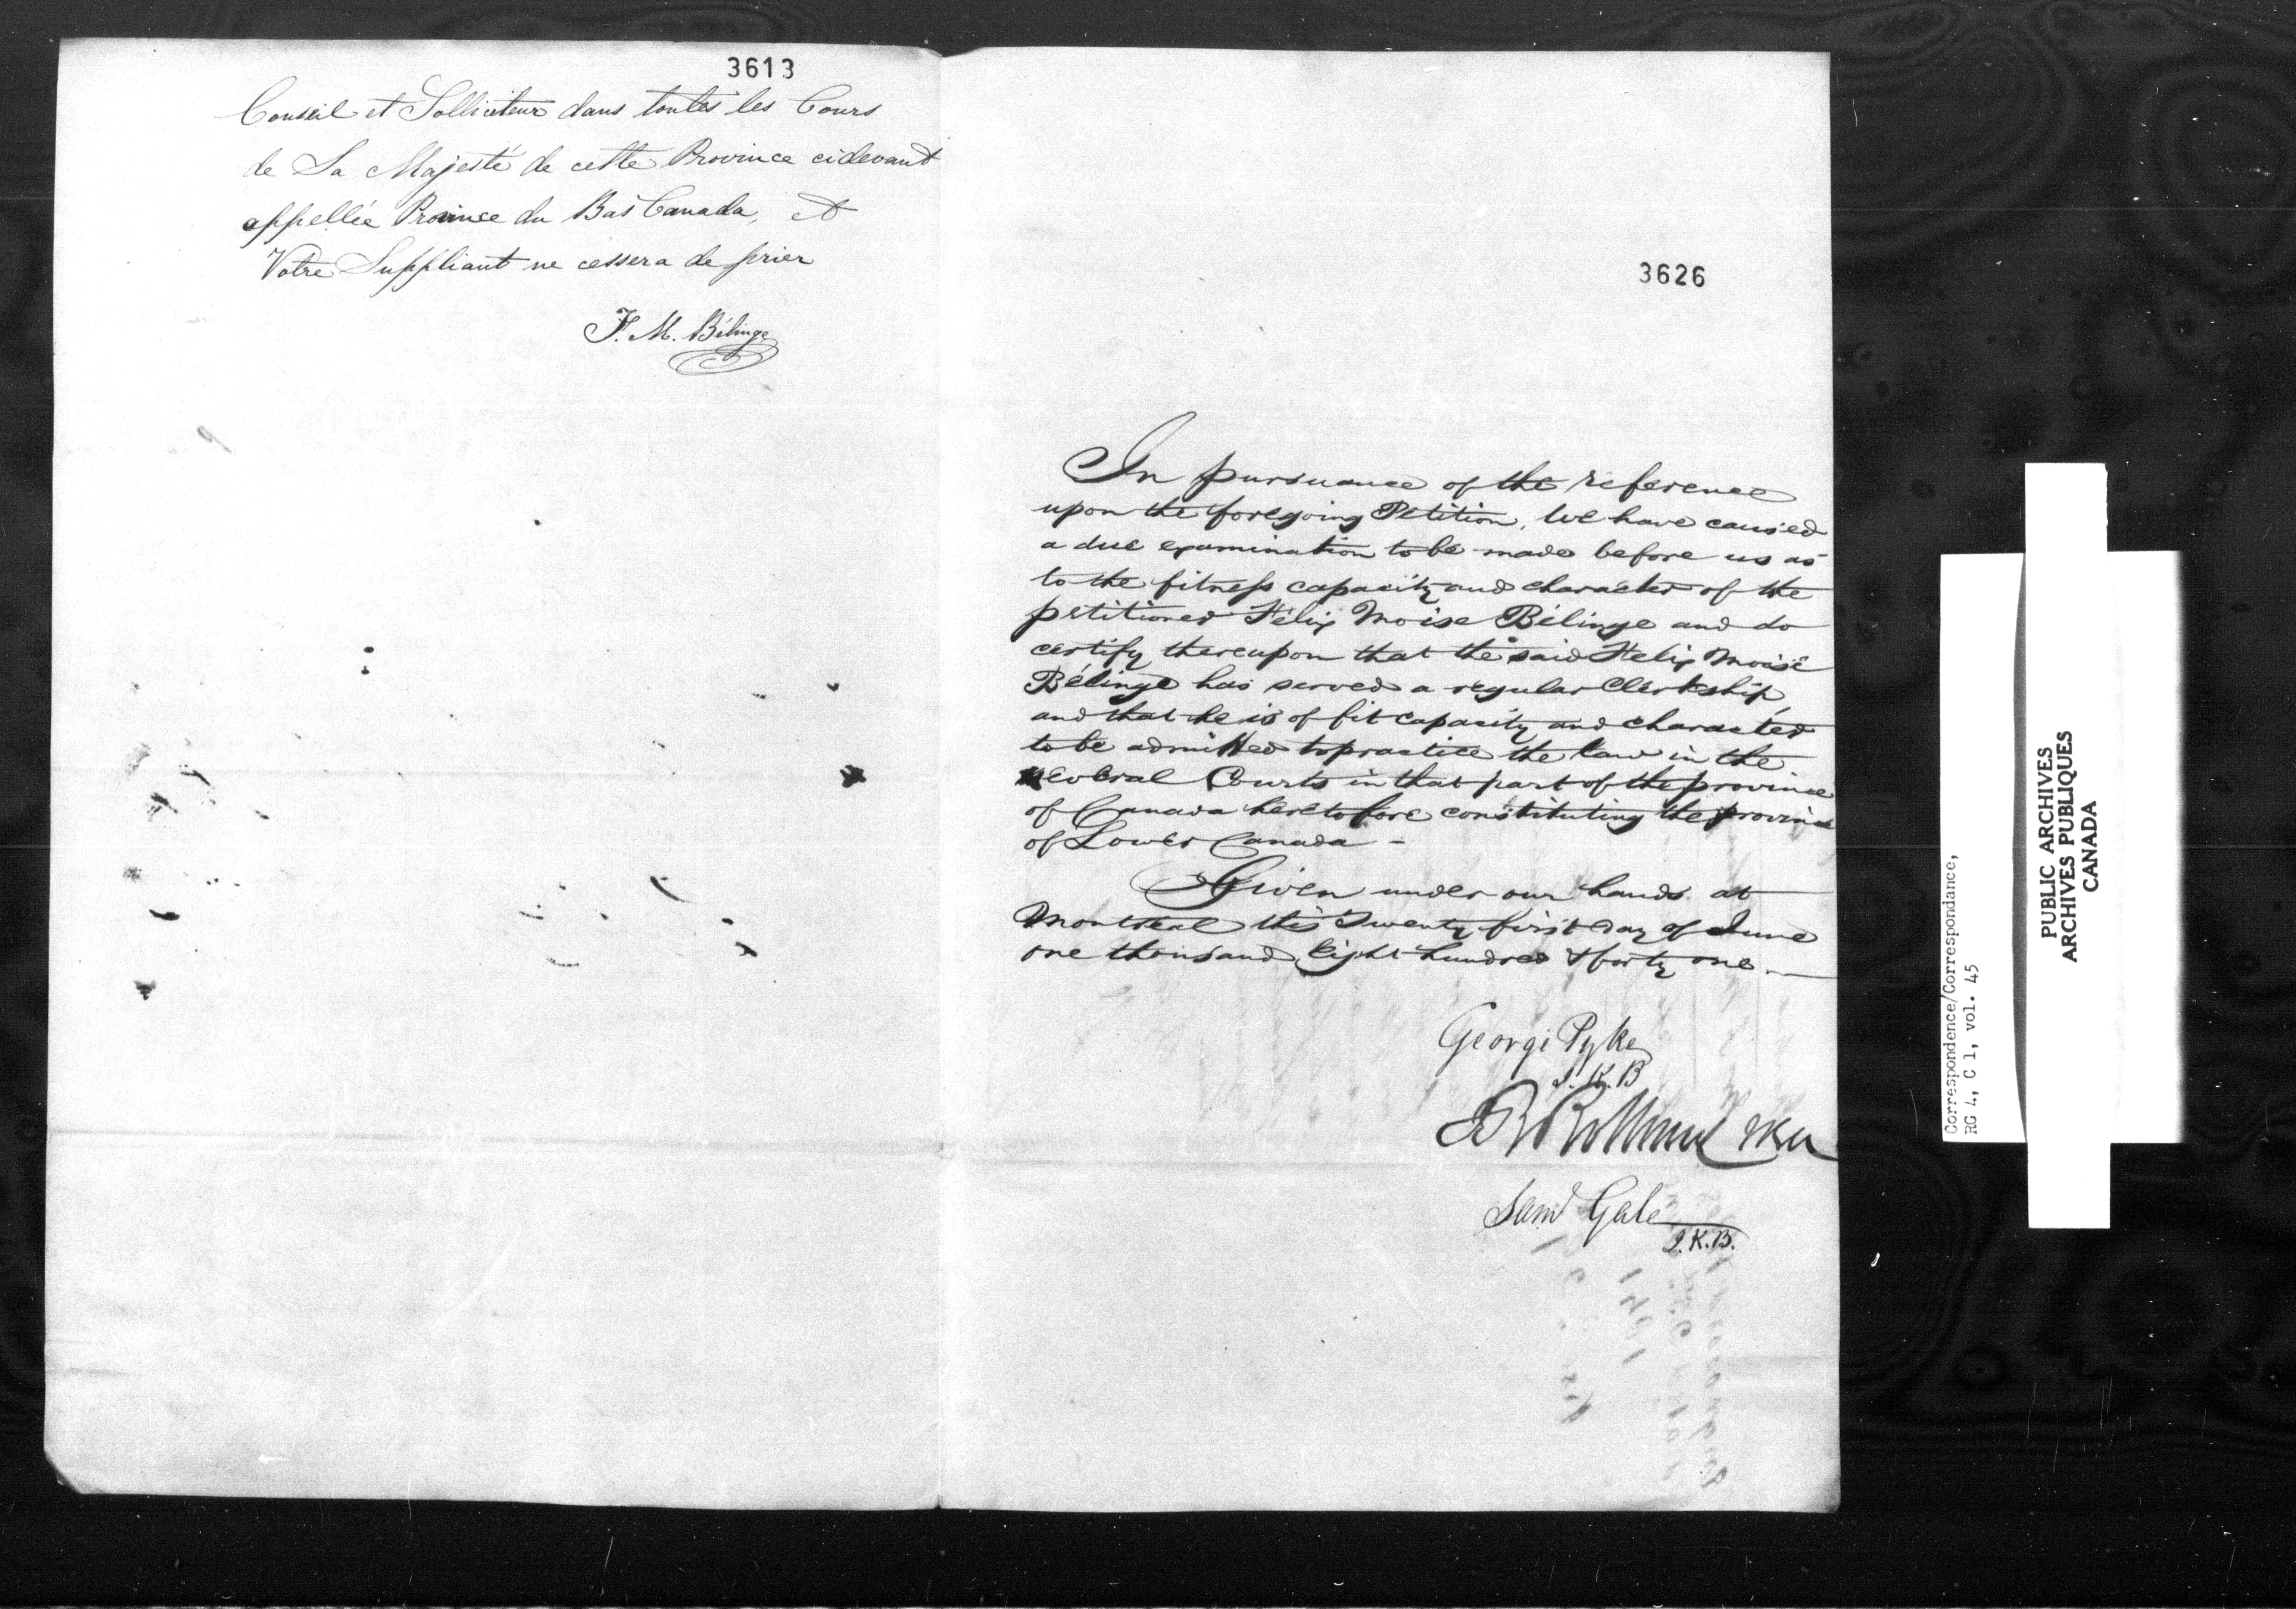 3613
Conseil et Solliciteur dans toutes les Cours
de Sa Majesté de cette Province cidevant
appellée Province du Bas Canada, et
Votre Suppliant ne cessera de prier
F. M. Bélinge
3626
In pursuance of the reference
upon the foregoing Petition, We have caused
a due examination to be made before us as
to the fitness capacity and character of the
petitioner Félix Moise Bélinge and do
certify thereupon that the said Felix Moïse
Bélinge has served a regular Clerkship,
and that he is of fit capacity and character
to be admitted to practice the law in the
several Courts in that part of the province
of Canada heretofore constituting the province
of Lower Canada -
Given under our hands at
Montreal this Twenty first day of June
one thousand Eight hundred & forty one.
George Pyke
J.K.B
Saml Gale
J.K.B.
Correspondence/Correspondance,
RG 4, C 1, vol. 45
PUBLIC ARCHIVES
ARCHIVES PUBLIQUES
CANADA